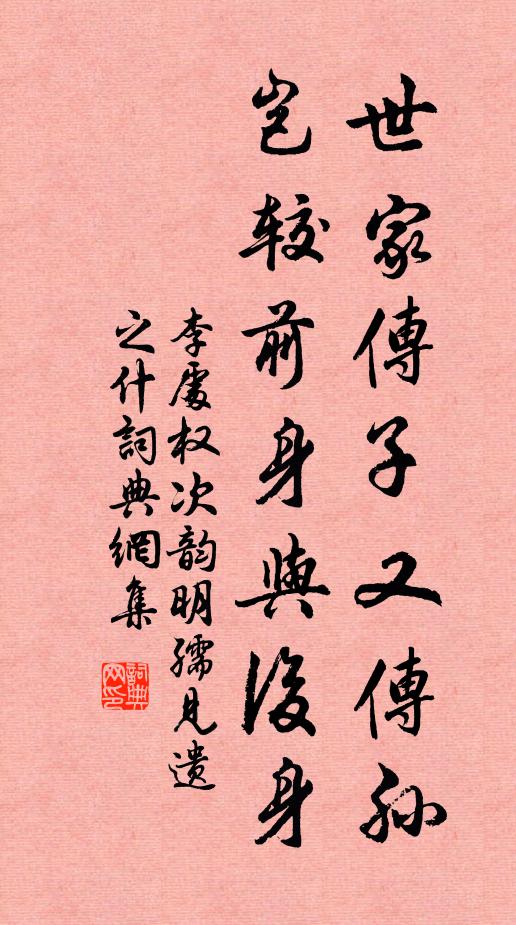 世家傳子又傳孫
豈較前身與後身
李處权次韵明孺見遺
之什詞典網集
詞典网印